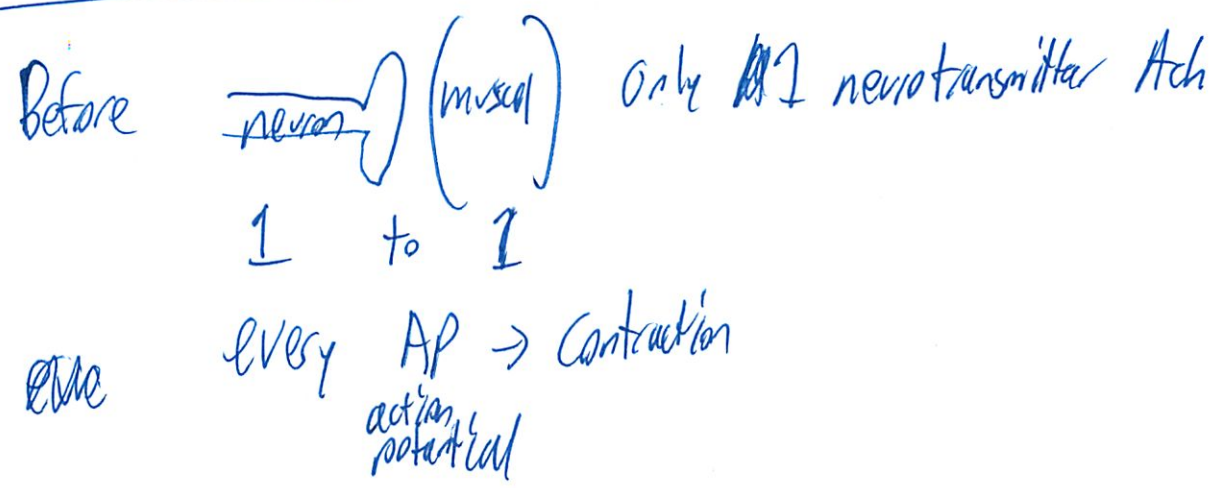 Before neuron muscel Only 1 neurotransmitter Ach
1 to 1
every AP → Contraction
action
potential